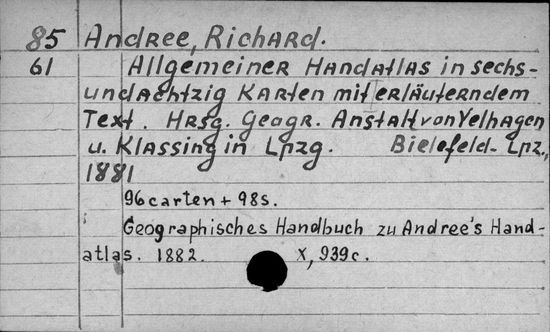 85 Andree, Richard.
61 Allgemeiner Handatlas in sechs-
undachtzig Karten mit erläuterndem
Text. Hrsg. Geagr. Anstalt von Velhagen
u. Klassing in Lpzg. Bielefeld-Lpz.,
1881
96 carten + 98 s.
Geographisches Handbuch zu Andree's Hand-
atlas. 1882. X, 939 c.